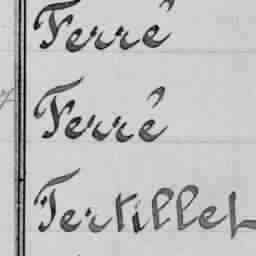 Ferré
Ferré
Fertillet